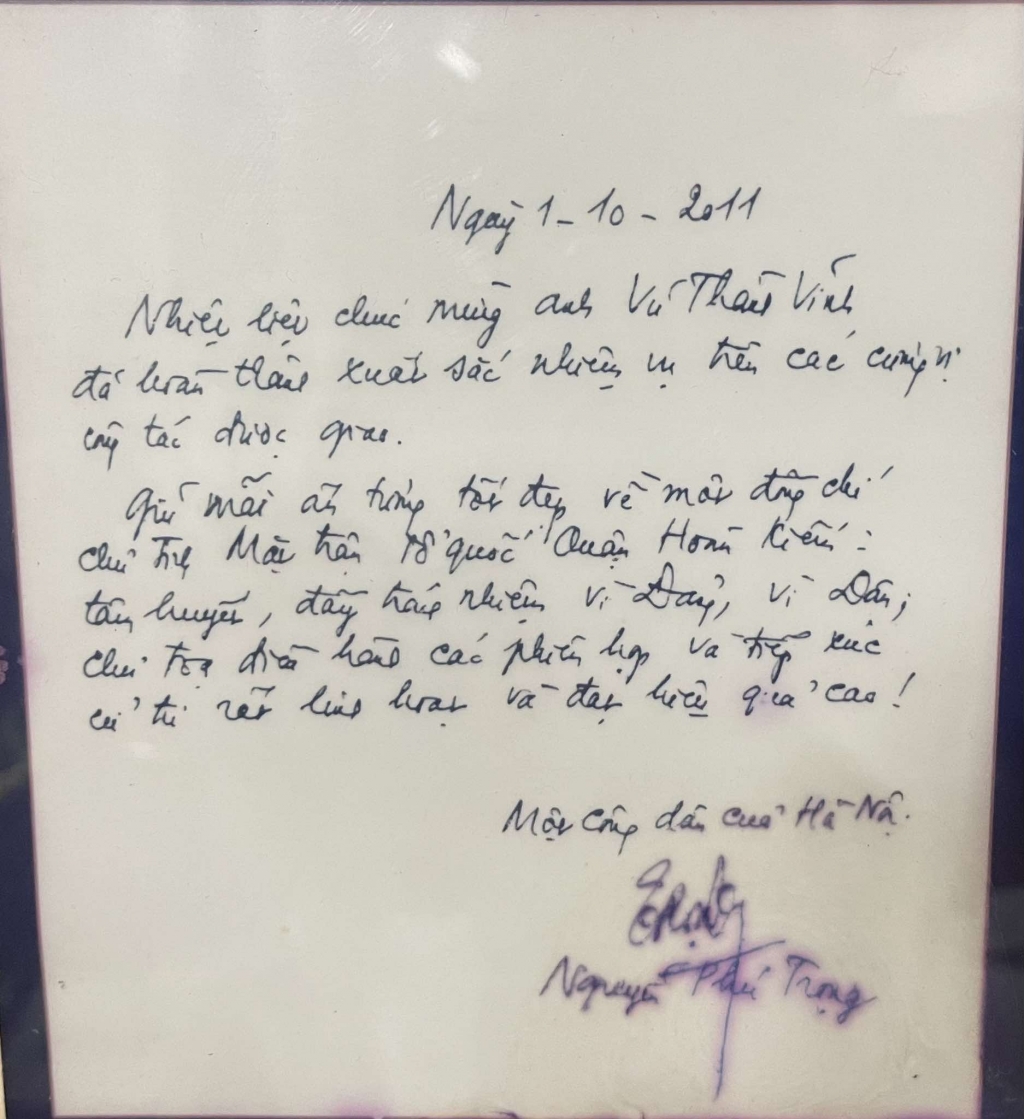 Ngày 1-10-2011
Nhiệt liệt chúc mừng anh Vũ Thành Vĩnh
đã hoàn thành xuất sắc nhiệm vụ trên các cương vị
công tác được giao.
Giữ mãi ấn tượng tốt đẹp về một đồng chí
chủ tịch Mặt trận Tổ quốc Quận Hoàn Kiếm:
tâm huyết, đầy trách nhiệm vì Đảng, vì Dân;
chủ tọa điều hành các phiên họp và tiếp xúc
cử tri rất linh hoạt và đạt hiệu quả cao!
Một công dân của Hà Nội.
Nguyễn Phú Trọng